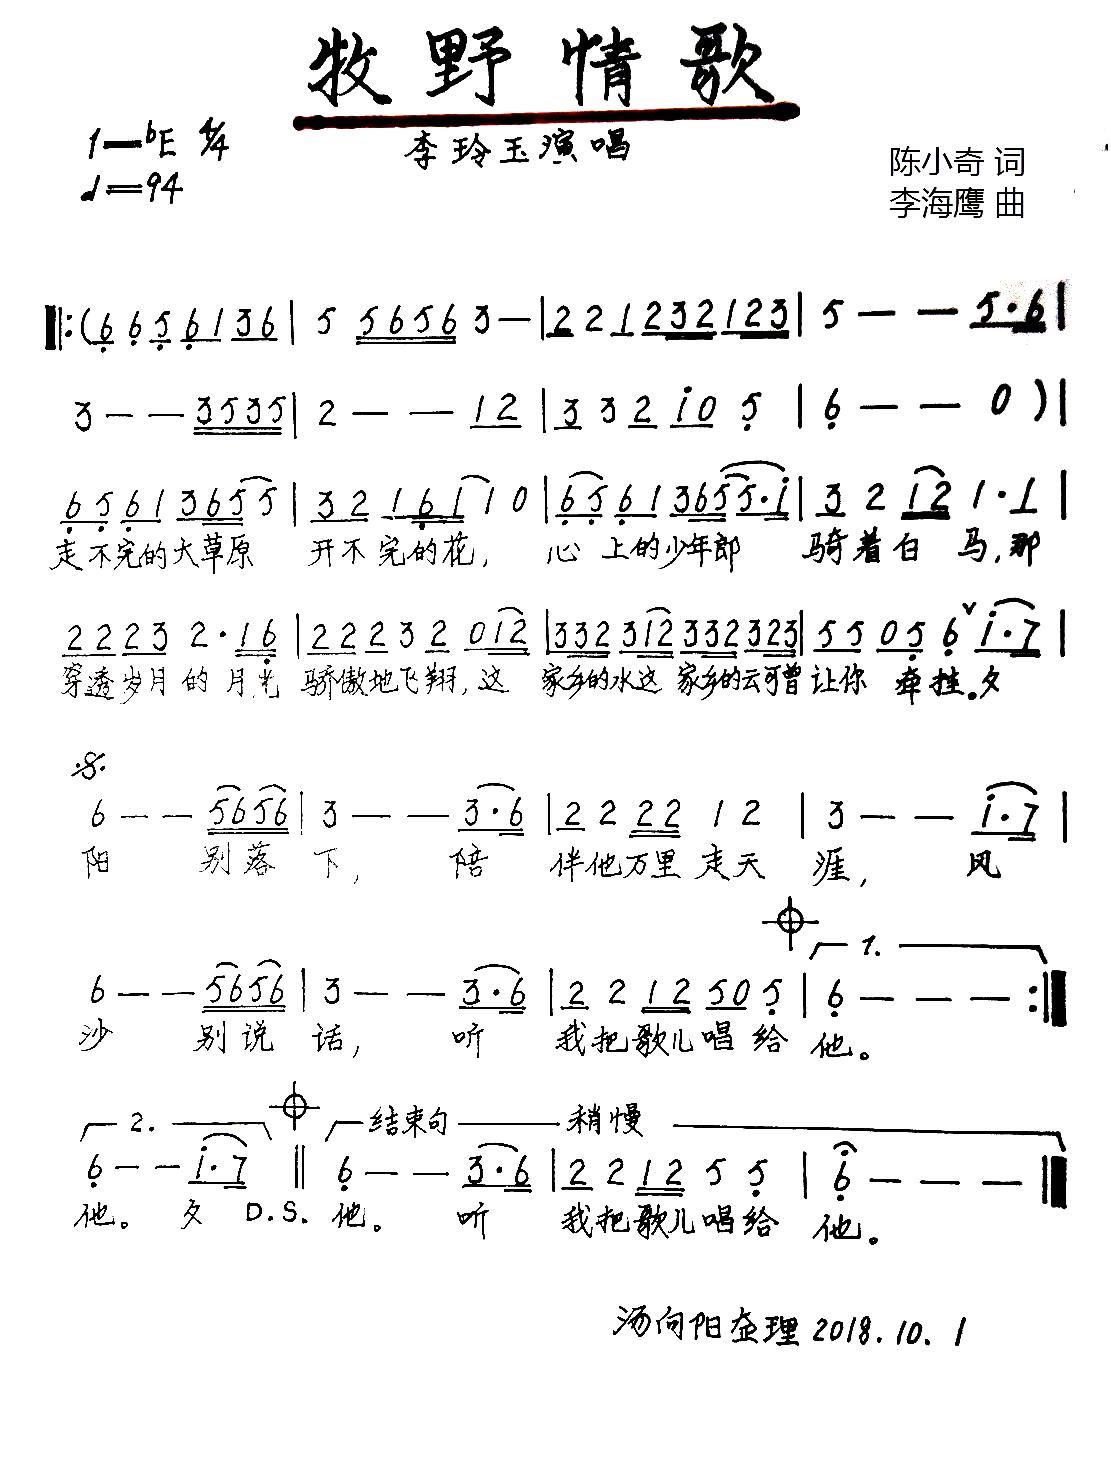 牧野情歌
1=bE 4/4
李玲玉演唱
♩=94
陈小奇 词
李海鹰 曲
‖:(6 6 5 6 1 3 6 | 5 5 6 5 6 3 — | 2 2 1 2 3 2 1 2 3 | 5 — — 5·6 |
3 — — 3 5 3 5 | 2 — — 1 2 | 3 3 2 i 0 5 | 6 — — 0 )|
6 5 6 1 3 6 5 5 | 3 2 1 6 1 1 0 | 6 5 6 1 3 6 5 5·i | 3 2 1 2 1·1 |
走不完的大草原 开不完的花, 心上的少年郎 骑着白马,那
2 2 2 3 2·1 6 | 2 2 2 3 2 0 1 2 | 3 3 2 3 1 2 3 3 2 3 2 3 | 5 5 0 5 6 ∨ i·7 |
穿透岁月的月光 骄傲地飞翔,这 家乡的水这 家乡的云可曾让你 牵挂。夕
𝄋
6 — — 5 6 5 6 | 3 — — 3·6 | 2 2 2 2 1 2 | 3 — — i·7 |
阳 别落下, 陪 伴他万里走天涯, 风
𝄌 1.
6 — — 5 6 5 6 | 3 — — 3·6 | 2 2 1 2 5 0 5 | 6 — — — :‖
沙 别说话, 听 我把歌儿唱给他。
2. 𝄌 结束句 稍慢
6 — — i·7 ‖ 6 — — 3·6 | 2 2 1 2 5 5 | 6 — — — ‖
他。 夕 D.S. 他。 听 我把歌儿唱给他。
汤向阳整理 2018.10.1